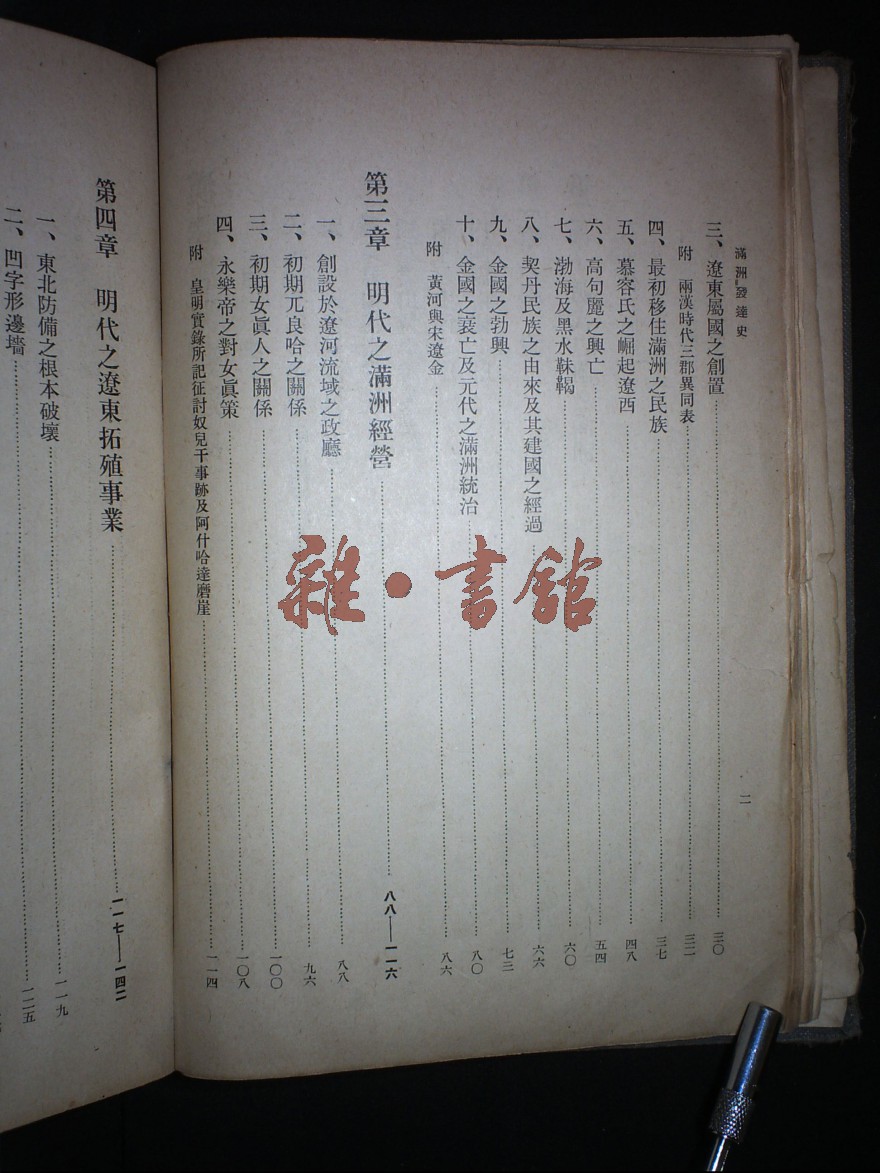 滿洲發達史
二
三、遼東屬國之創置……三〇
附 兩漢時代三郡異同表……三二
四、最初移住滿洲之民族……三七
五、慕容氏之崛起遼西……四八
六、高句麗之興亡……五四
七、渤海及黑水靺鞨……六〇
八、契丹民族之由來及其建國之經過……六六
九、金國之勃興……七三
十、金國之衰亡及元代之滿洲統治……八〇
附 黃河與宋遼金……八六
第三章 明代之滿洲經營……八八——一一六
一、創設於遼河流域之政廳……八八
二、初期兀良哈之關係……九六
三、初期女眞人之關係……一〇〇
四、永樂帝之對女眞策……一〇八
附 皇明實錄所記征討奴兒干事跡及阿什哈達磨崖……一一四
第四章 明代之遼東拓殖事業……一一七——一四二
一、東北防備之根本破壞……一一九
二、凹字形邊墻……一二五
雜·書館